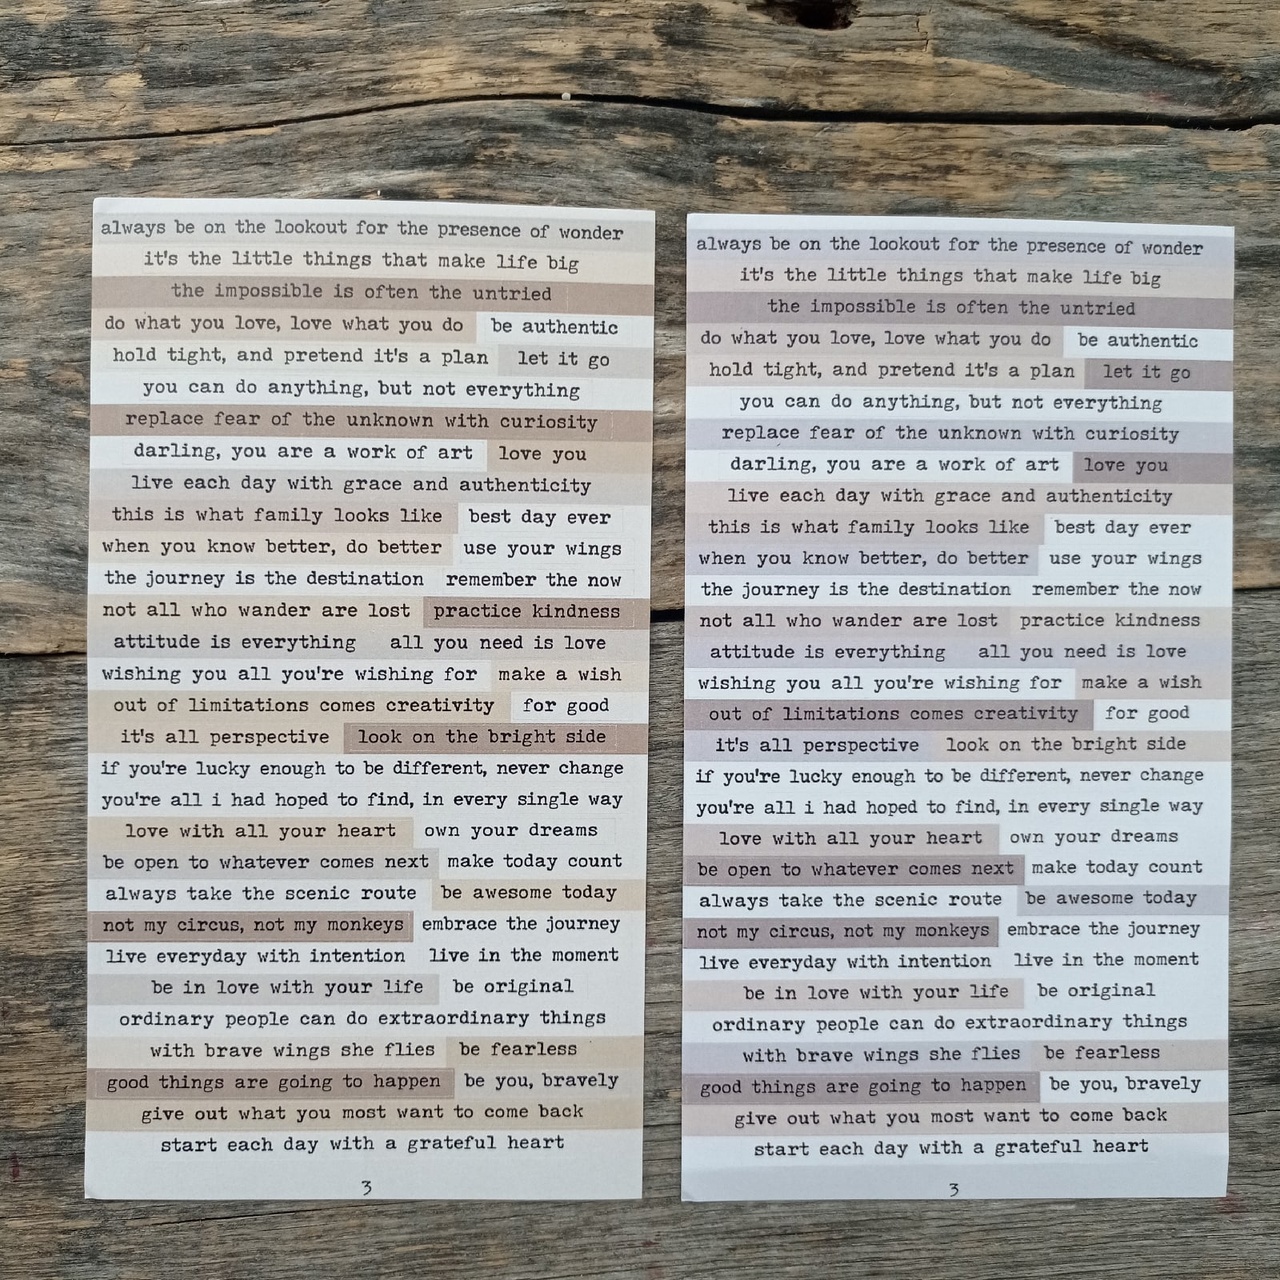 always be on the lookout for the presence of wonder
it's the little things that make life big
the impossible is often the untried
do what you love, love what you do be authentic
hold tight, and pretend it's a plan let it go
you can do anything, but not everything
replace fear of the unknown with curiosity
darling, you are a work of art love you
live each day with grace and authenticity
this is what family looks like best day ever
when you know better, do better use your wings
the journey is the destination remember the now
not all who wander are lost practice kindness
attitude is everything all you need is love
wishing you all you're wishing for make a wish
out of limitations comes creativity for good
it's all perspective look on the bright side
if you're lucky enough to be different, never change
you're all i had hoped to find, in every single way
love with all your heart own your dreams
be open to whatever comes next make today count
always take the scenic route be awesome today
not my circus, not my monkeys embrace the journey
live everyday with intention live in the moment
be in love with your life be original
ordinary people can do extraordinary things
with brave wings she flies be fearless
good things are going to happen be you, bravely
give out what you most want to come back
start each day with a grateful heart
3
always be on the lookout for the presence of wonder
it's the little things that make life big
the impossible is often the untried
do what you love, love what you do be authentic
hold tight, and pretend it's a plan let it go
you can do anything, but not everything
replace fear of the unknown with curiosity
darling, you are a work of art love you
live each day with grace and authenticity
this is what family looks like best day ever
when you know better, do better use your wings
the journey is the destination remember the now
not all who wander are lost practice kindness
attitude is everything all you need is love
wishing you all you're wishing for make a wish
out of limitations comes creativity for good
it's all perspective look on the bright side
if you're lucky enough to be different, never change
you're all i had hoped to find, in every single way
love with all your heart own your dreams
be open to whatever comes next make today count
always take the scenic route be awesome today
not my circus, not my monkeys embrace the journey
live everyday with intention live in the moment
be in love with your life be original
ordinary people can do extraordinary things
with brave wings she flies be fearless
good things are going to happen be you, bravely
give out what you most want to come back
start each day with a grateful heart
3